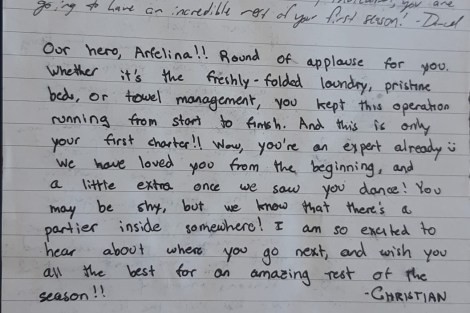 going to have an incredible rest of your first season! -David
Our hero, Arfelina!! Round of applause for you.
Whether it's the freshly-folded laundry, pristine
beds, or towel management, you kept this operation
running from start to finish. And this is only
your first charter!! Wow, you're an expert already ü
We have loved you from the beginning, and
a little extra once we saw you dance! You
may be shy, but we know that there's a
partier inside somewhere! I am so excited to
hear about where you go next, and wish you
all the best for an amazing rest of the
season!! -CHRISTIAN